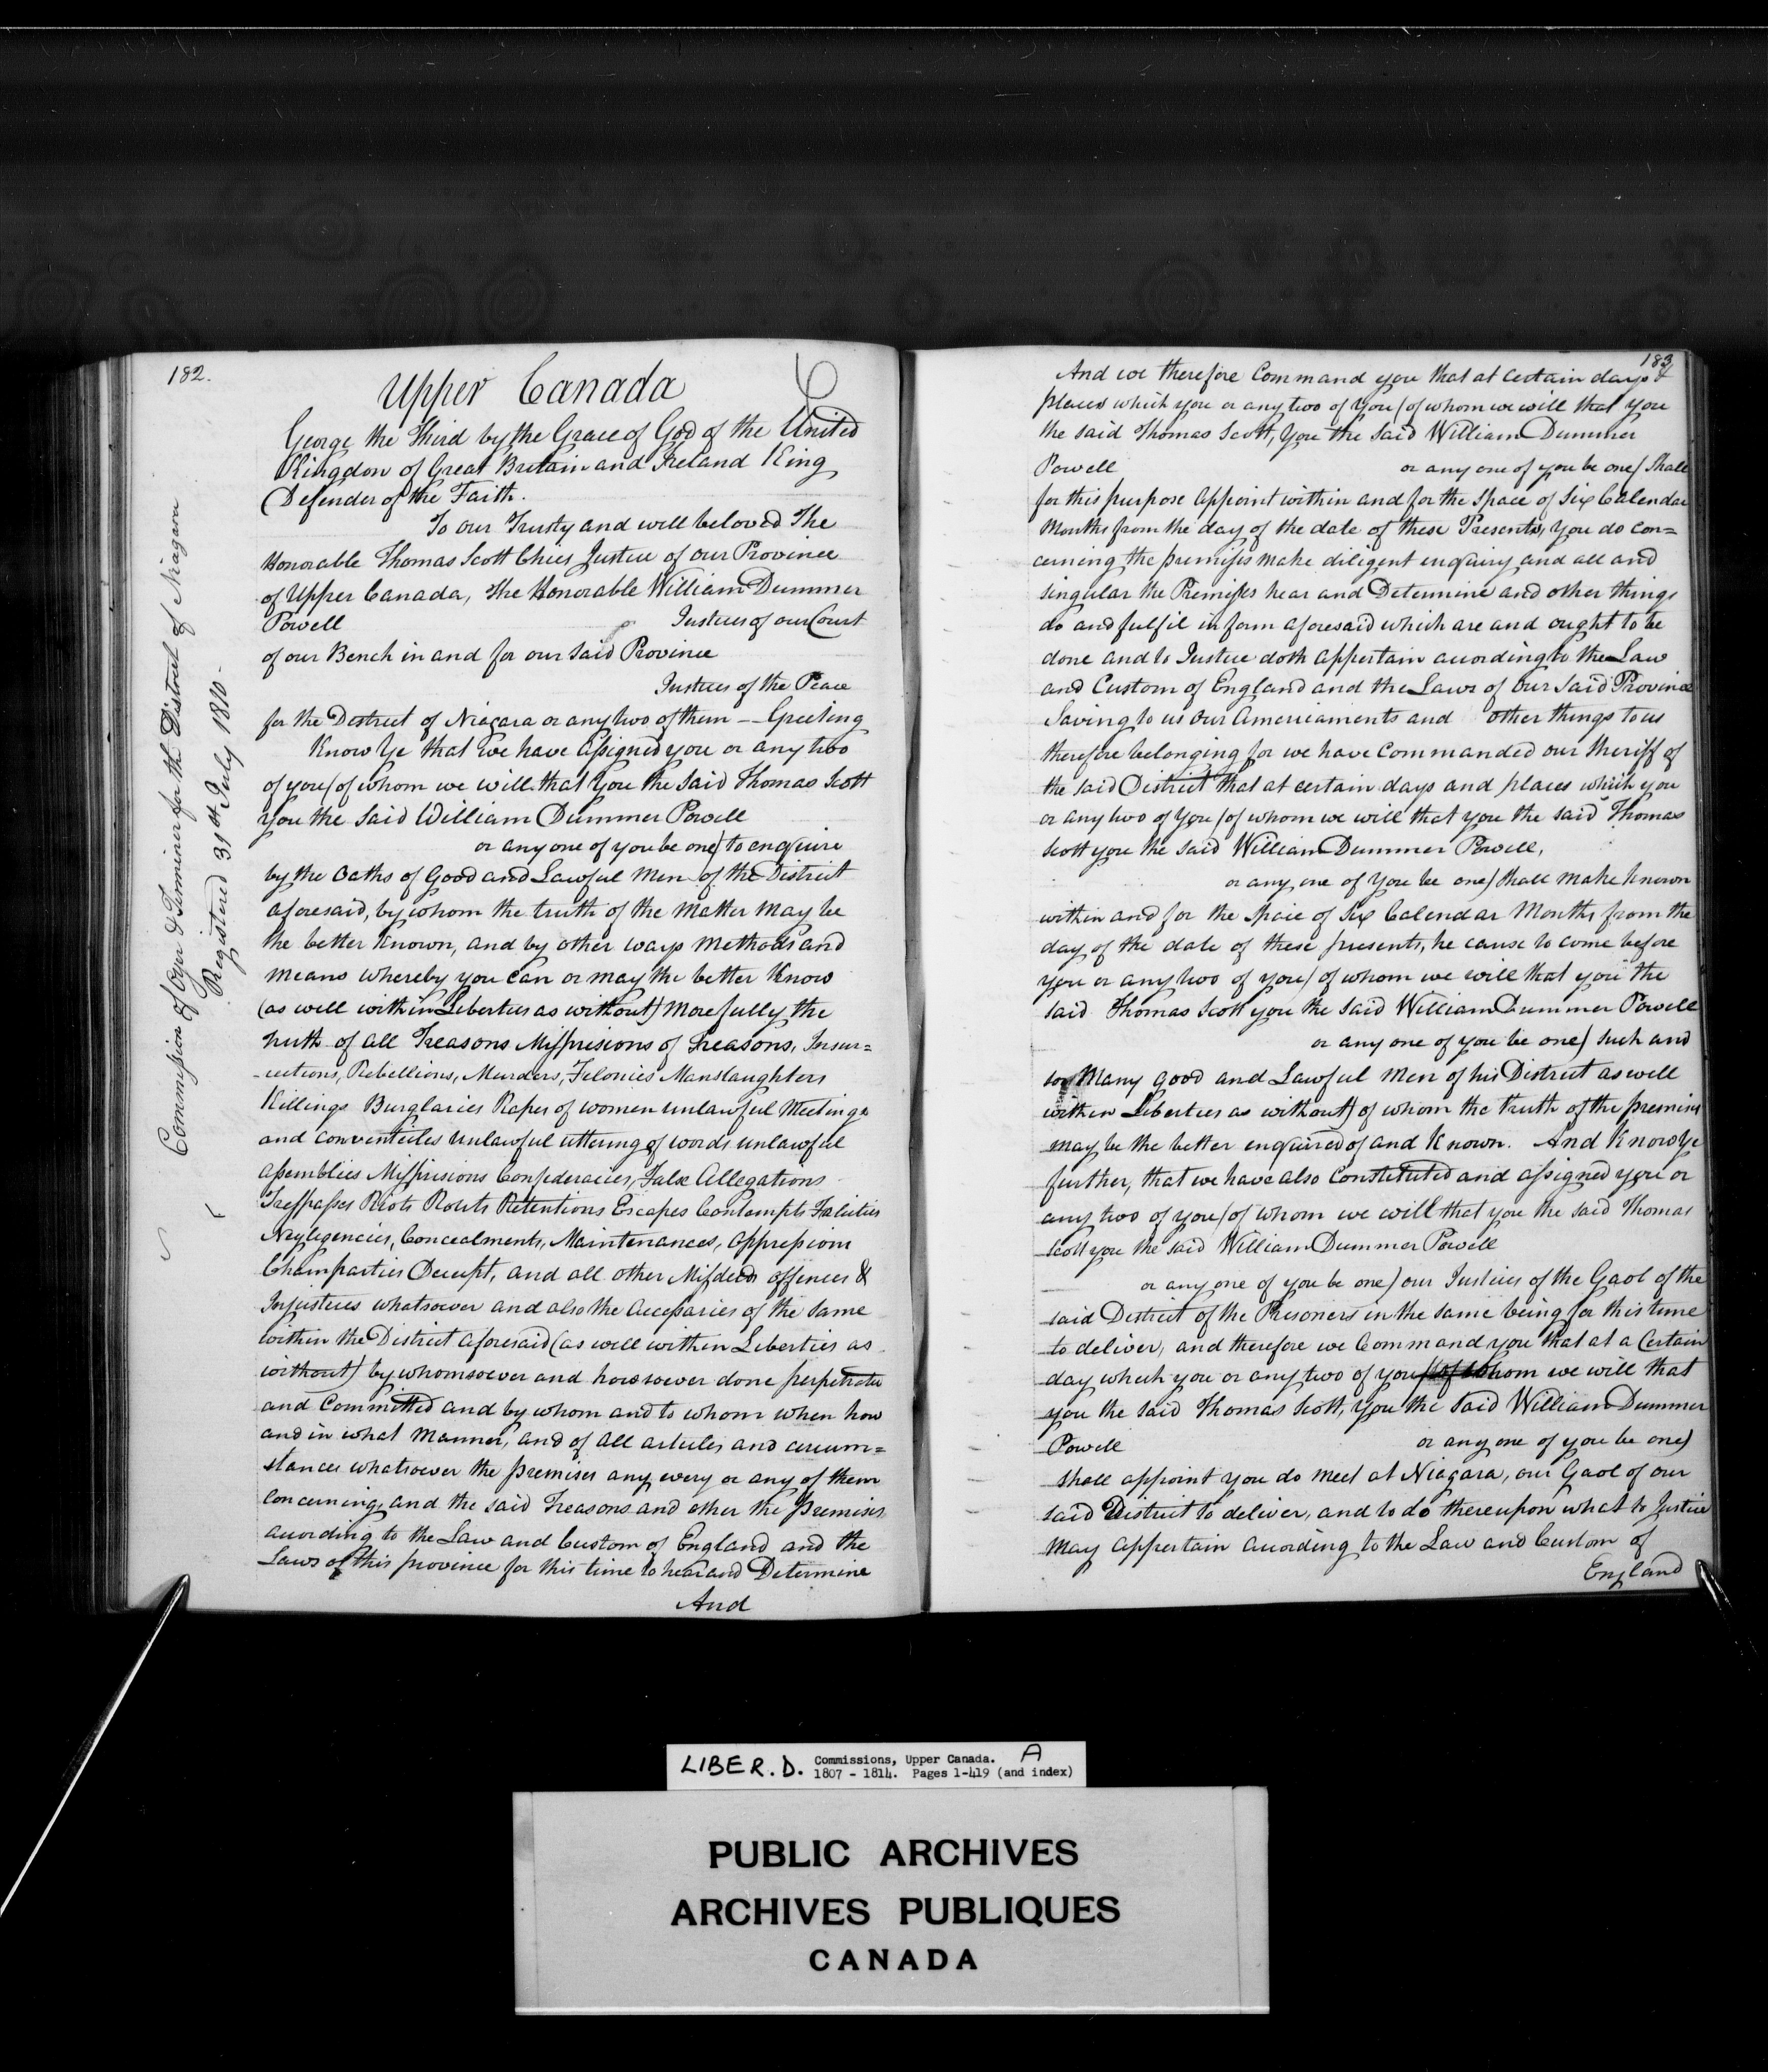 182.
Commission of Oyer & Terminer for the District of Niagara
Registered 31st July 1810.
Upper Canada
George the Third by the Grace of God of the United
Kingdon of Great Britain and Ireland King
Defender of the Faith.
To our Trusty and will beloved The
Honorable Thomas Scott Chief Justice of our Province
of Upper Canada, the Honorable William Dummer
Powell Justices of our Court
of our Bench in and for our said Province
Justices of the Peace
for the District of Niagara or any two of them — Greeting
Know Ye that we have assigned you or any two
of you (of whom we will that you the said Thomas Scott
you the said William Dummer Powell
or any one of you be one) to enquire
by the Oaths of Good and Lawful Men of the District
aforesaid, by whom the truth of the Matter may be
the better known, and by other ways Methods and
means whereby you can or may the better Know
(as well within Liberties as without) more fully the
truth of all Treasons Misprisions of Treasons, Insur=
-rections, Rebellions, Murders, Felonies Manslaughters
Killings Burglaries Rapes of women unlawful Meetings
and conventicles unlawful uttering of words unlawful
assemblies Misprisions Confederacies, False Allegations
Trespasses Riots Routs Retentions Escapes Contempts Falsities
Negligencies, Concealments, Maintenances, Oppressions
Champarties Deceipt, and all other Misdeeds offences &
Injustices whatsoever and also the Accessaries of the same
within the District aforesaid (as well within Liberties as
without) by whomsoever and howsoever done perpetrated
and Committed and by whom and to whom when how
and in what manner, and of all articles and circum=
stances whatsoever the premises any every or any of them
Concerning, and the said Treasons and other the Premises
according to the Law and Custom of England and the
Laws of this province for this time to hear and Determine
And
183
And we therefore Command you that at certain days &
places which you or any two of you (of whom we will that you
the said Thomas Scott, you the said William Dummer
Powell or any one of you be one) shall
for this purpose Appoint within and for the space of Six Calendar
Months from the day of the date of these Presents, you do con=
cerning the premises make diligent enquiry and all and
singular the Premises hear and Determine and other things
do and fulfil in form aforesaid which are and ought to be
done and to Justice doth appertain according to the Law
and Custom of England and the Laws of our said Province
Saving to us our Amerciaments and other things to us
therefore belonging for we have commanded our Sheriff of
the said District that at certain days and places which you
or any two of you (of whom we will that you the said Thomas
Scott you the said William Dummer Powell,
or any one of you be one) shall make known
within and for the space of Six Calendar Months from the
day of the date of these presents, he cause to come before
you or any two of you (of whom we will that you the
said Thomas Scott you the said William Dummer Powell
or any one of you be one) such and
so Many good and Lawful men of his District as well
within Liberties as without) of whom the truth of the premises
may be the better enquired of and Known. And Know Ye
further, that we have also Constituted and assigned you or
any two of you (of whom we will that you the said Thomas
Scott you the said William Dummer Powell
or any one of you be one) our Justices of the Gaol of the
said District of the Prisoners in the same being for this time
to deliver, and therefore we Command you that at a Certain
day which you or any two of you (of whom we will that
you the said Thomas Scott, you the said William Dummer
Powell or any one of you be one)
shall appoint you do meet at Niagara, our Gaol of our
said District to deliver, and to do thereupon what to Justice
may appertain according to the Law and Custom of
England
LIBER. D. Commissions, Upper Canada. A
1807 - 1814. Pages 1-419 (and index)
PUBLIC ARCHIVES
ARCHIVES PUBLIQUES
CANADA